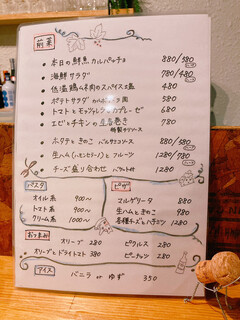 前菜
・本日の鮮魚カルパッチョ 880/580
・海鮮サラダ 780/480
・低温鶏ムネ肉のスパイス塩 480
・ポテトサラダ
・トマトとモッツァレラ カプレーゼ 680
・エビとチキンの生春巻き 780
特製サワソース
・ホタテときのこ バルサミコソース 880/580
・生ハム(ハモンセラーノ)とフルーツ 1280/780
・チーズ盛り合わせ 1280
パスタ
オイル系 900〜
トマト系 900〜
クリーム系 1000〜
ピザ
マルゲリータ 880
生ハムときのこ 980
各種チーズとハチミツ 1280
おつまみ
オリーブ 280
オリーブとドライトマト 380
ピクルス 280
ピーナッツ 280
アイス
バニラ or ゆず 350